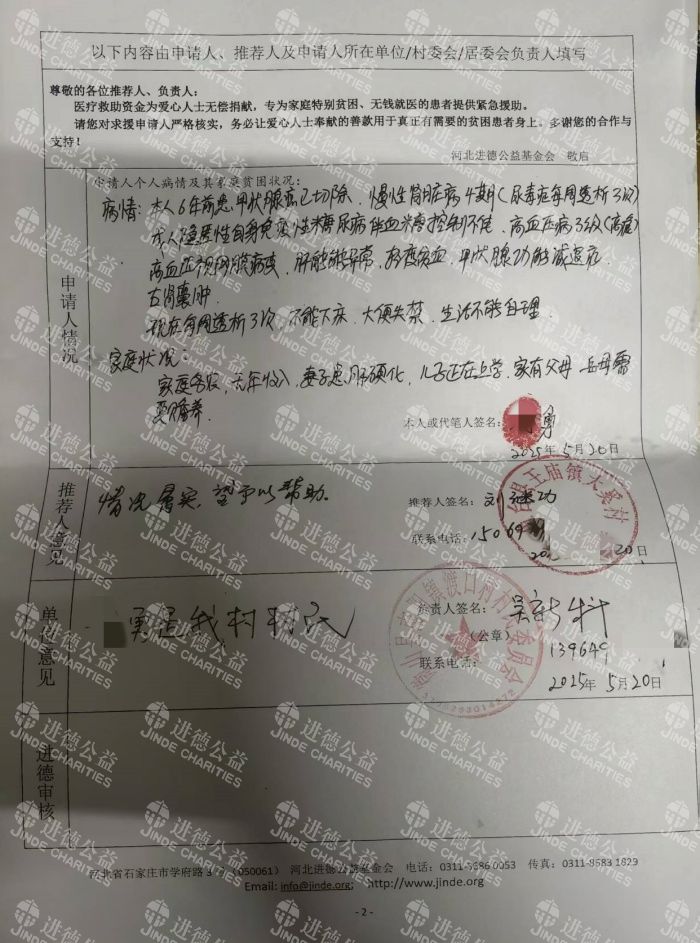 以下内容由申请人、推荐人及申请人所在单位/村委会/居委会负责人填写
尊敬的各位推荐人、负责人:
医疗救助资金为爱心人士无偿捐献,专为家庭特别贫困、无钱就医的患者提供紧急援助。
请您对求援申请人严格核实,务必让爱心人士奉献的善款用于真正有需要的贫困患者身上。多谢您的合作与
支持!
河北进德公益基金会 敬启
申请人情况
申请人个人病情及其家庭贫困状况:
病情:本人6年前患甲状腺癌已切除、慢性肾脏病4期(尿毒症每周透析3次)
成人隐匿性自身免疫性糖尿病伴血糖控制不佳、高血压病3级(高危)
高血压视网膜病变、肝功能异常、轻度贫血、甲状腺功能减退症
右肾囊肿.
现在每周透析3次、不能下床、大便失禁、生活不能自理.
家庭状况:
家庭务农,无年收入,妻子患肝硬化,儿子正在上学,家有父母、岳母需
要赡养.
本人或代笔人签名: 勇
2025年5月20日
推荐人意见
情况属实,望予以帮助。
推荐人签名:刘继功
联系电话:15069
20日
王庙镇大吴村
单位意见
勇是我村村民
负责人签名:吴新科
(公章)
联系电话:139649
2025年5月20日
镇渡口村村民委员会
进德审核
河北省石家庄市学府路 (050061) 河北进德公益基金会 电话:0311- 0053 传真:0311-8683 1829
Email: info@jinde.org; http://www.jinde.org
- 2 -
进德公益
JINDE CHARITIES